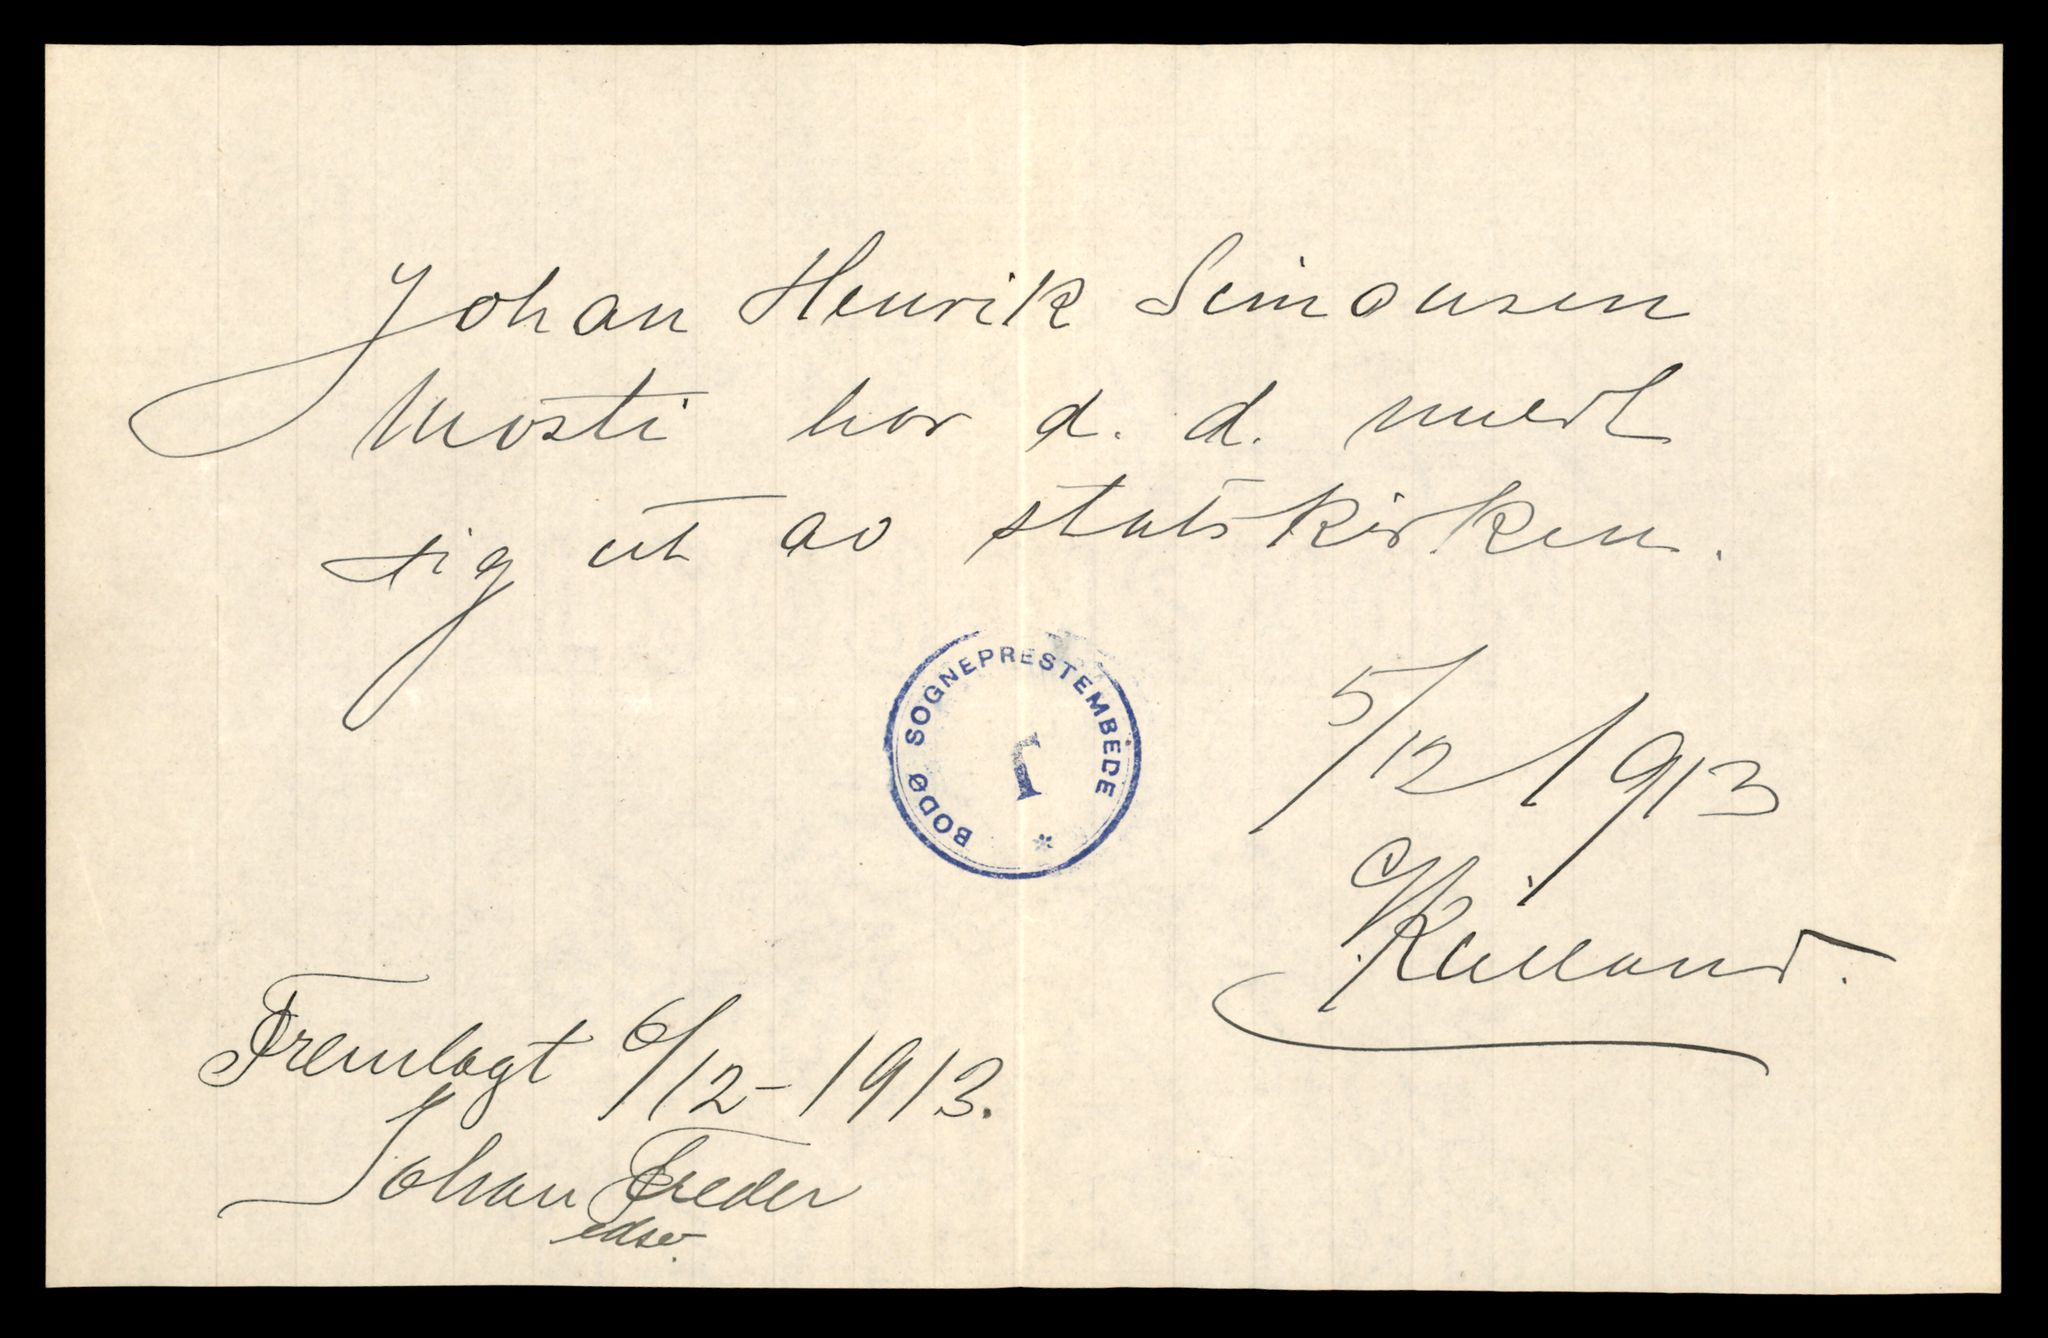 Johan Henrik Simonsen
Mosti har d. d. meldt
sig ut av statskirken.
BODØ SOGNEPRESTEMBEDE
5/12 1913
Kielland.
Fremlagt 6/12-1913.
Johan Freder
edsv.